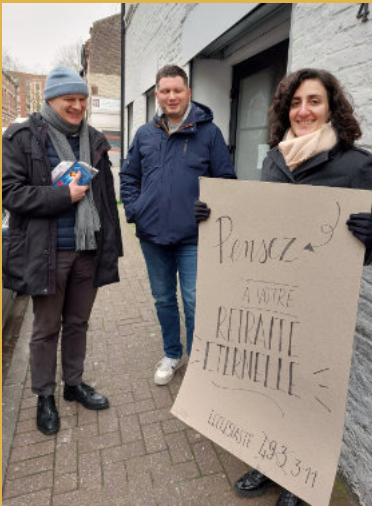 Pensez
À VOTRE
RETRAITE
ETERNELLE
ECCLESIASTE
3-11
4